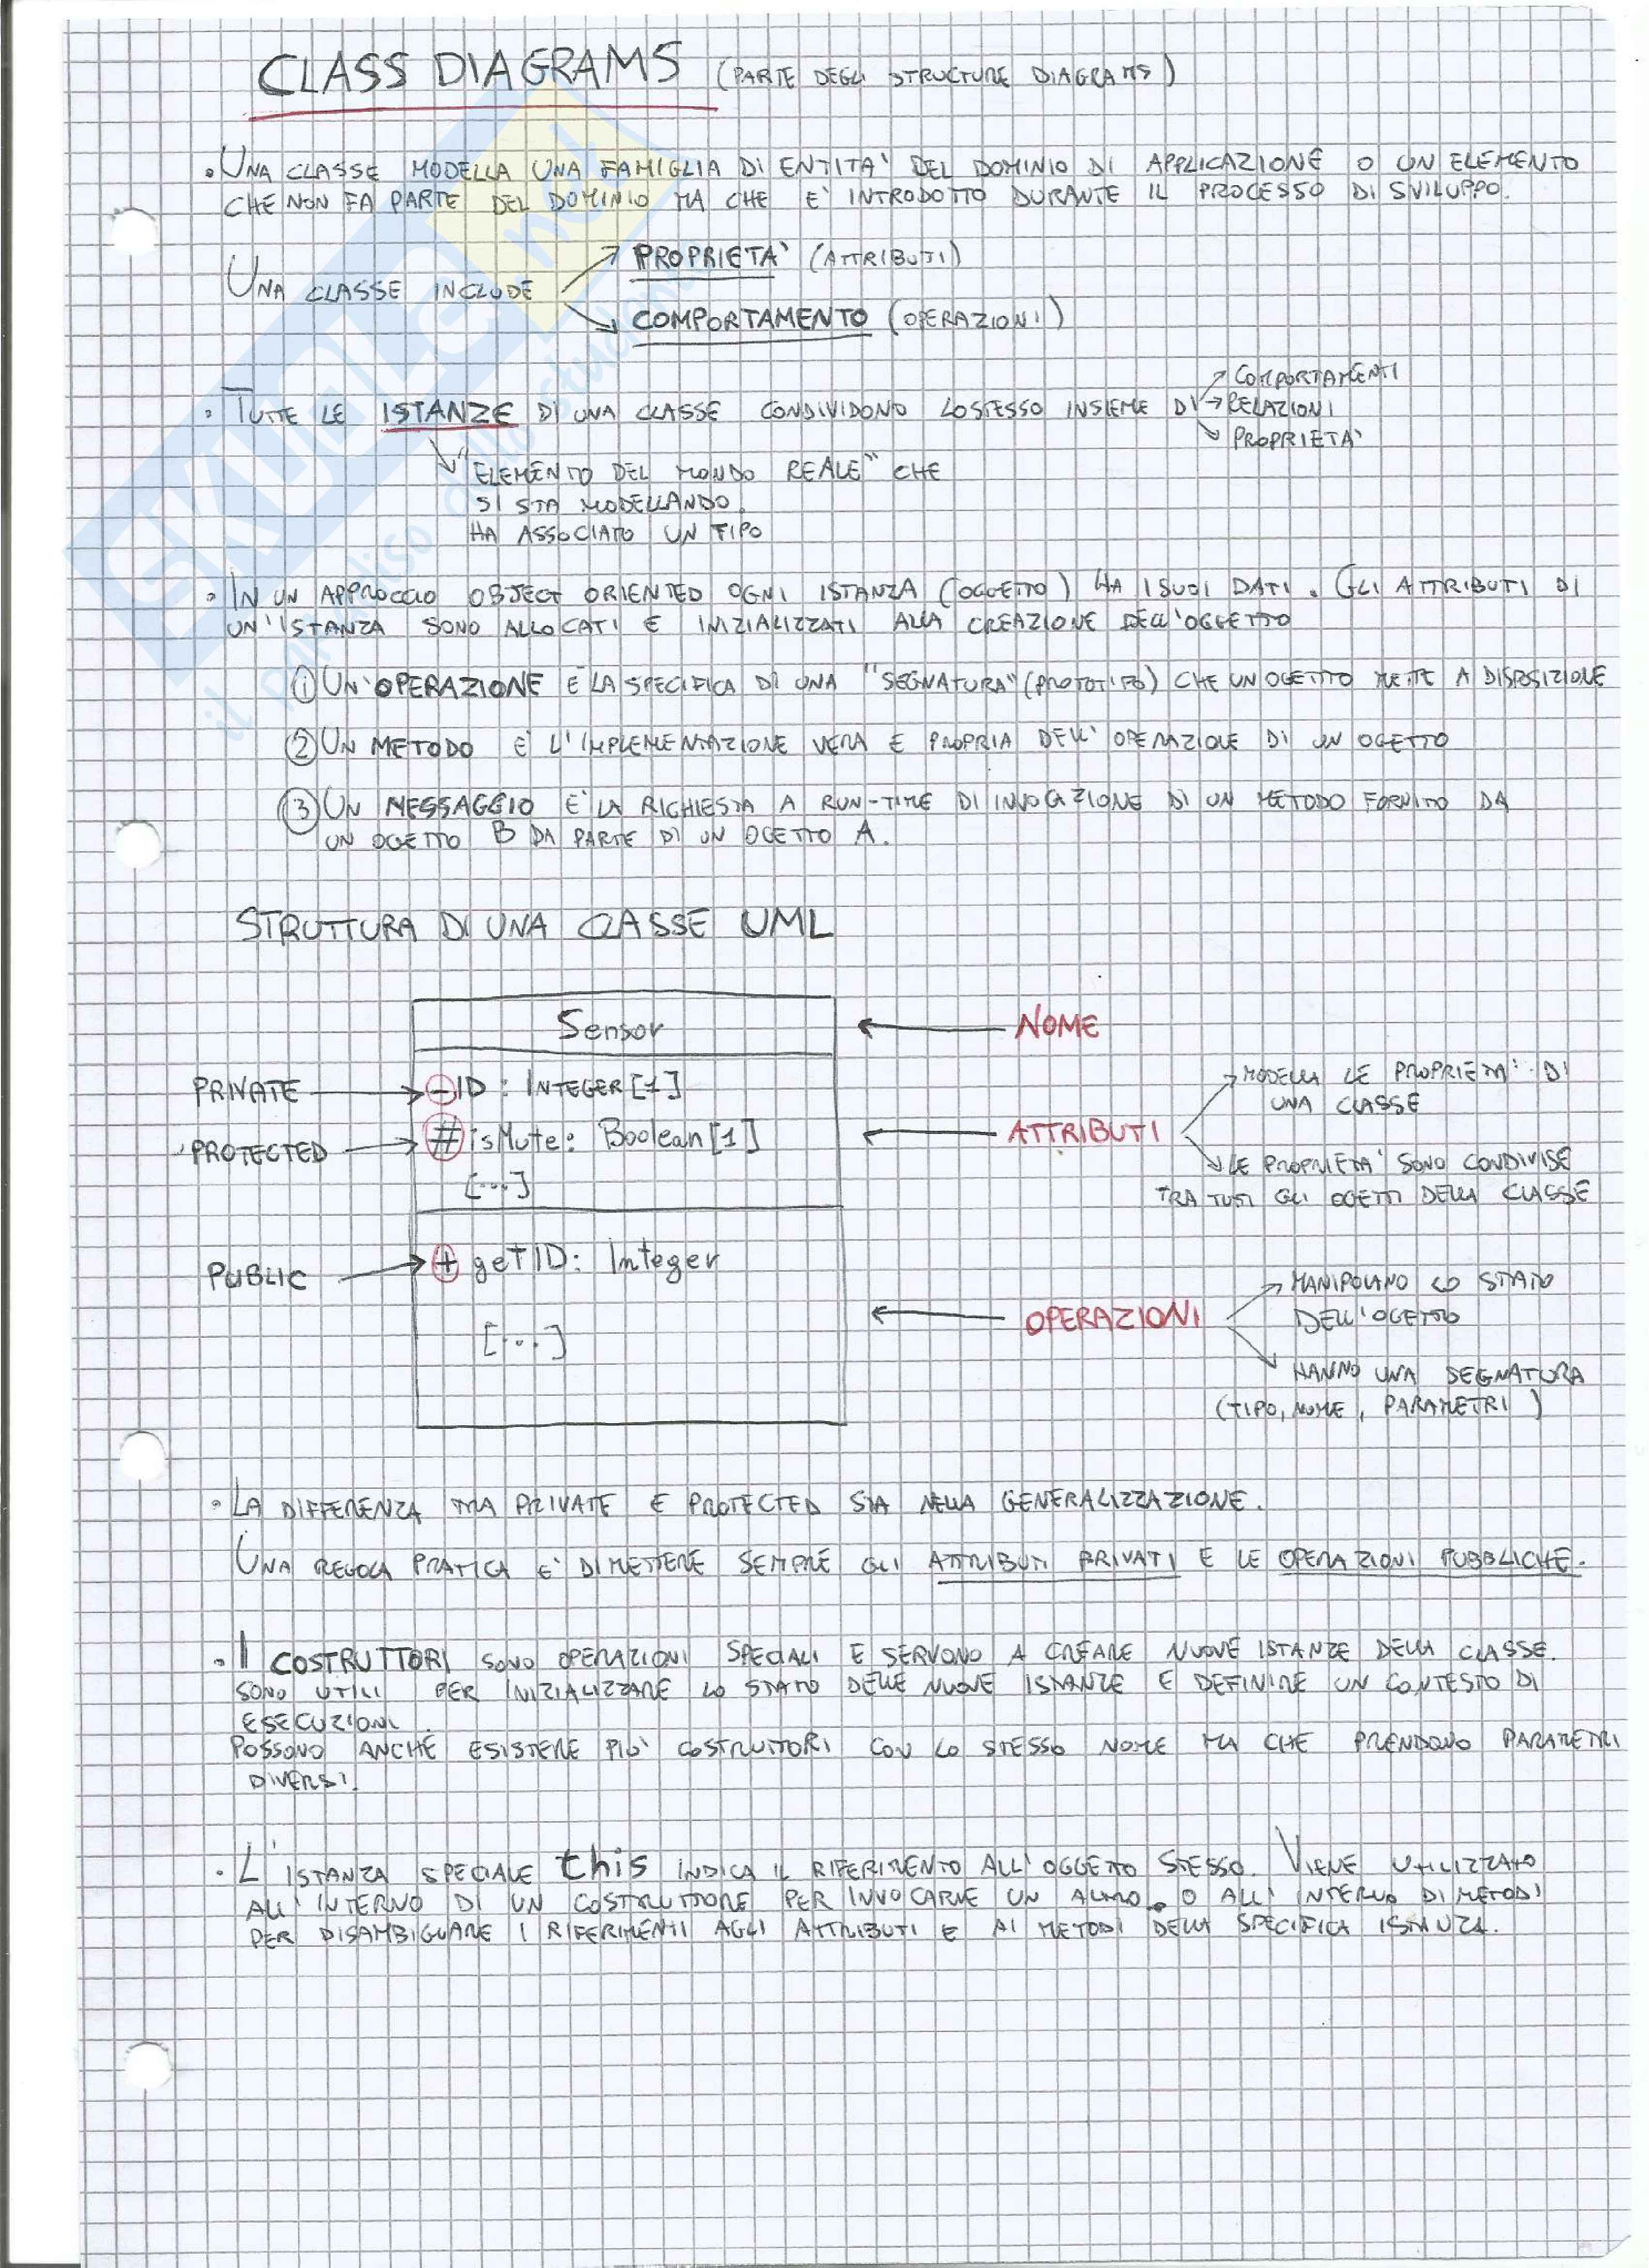 CLASS DIAGRAMS (PARTE DEGLI STRUCTURE DIAGRAMS)
• UNA CLASSE MODELLA UNA FAMIGLIA DI ENTITA' DEL DOMINIO DI APPLICAZIONE O UN ELEMENTO
CHE NON FA PARTE DEL DOMINIO MA CHE E' INTRODOTTO DURANTE IL PROCESSO DI SVILUPPO.
PROPRIETA' (ATTRIBUTI)
UNA CLASSE INCLUDE
COMPORTAMENTO (OPERAZIONI)
COMPORTAMENTI
• TUTTE LE ISTANZE DI UNA CLASSE CONDIVIDONO LO STESSO INSIEME DI → RELAZIONI
PROPRIETA'
"ELEMENTO DEL MONDO REALE" CHE
SI STA MODELLANDO.
HA ASSOCIATO UN TIPO
• IN UN APPROCCIO OBJECT ORIENTED OGNI ISTANZA (OGGETTO) HA I SUOI DATI. GLI ATTRIBUTI DI
UN'ISTANZA SONO ALLOCATI E INIZIALIZZATI ALLA CREAZIONE DELL'OGGETTO
① UN'OPERAZIONE E' LA SPECIFICA DI UNA "SEGNATURA" (PROTOTIPO) CHE UN OGETTO METTE A DISPOSIZIONE
② UN METODO E' L'IMPLEMENTAZIONE VERA E PROPRIA DELL'OPERAZIONE DI UN OGETTO
③ UN MESSAGGIO E' LA RICHIESTA A RUN-TIME DI INVOCAZIONE DI UN METODO FORNITO DA
UN OGETTO B DA PARTE DI UN OGETTO A.
STRUTTURA DI UNA CLASSE UML
Sensor ← NOME
PRIVATE → - ID : INTEGER [1]
MODELLA LE PROPRIETA' DI
UNA CLASSE
PROTECTED → # isMute: Boolean [1] ← ATTRIBUTI
LE PROPRIETA' SONO CONDIVISE
[...]
TRA TUTTI GLI OGETTI DELLA CLASSE
PUBLIC → + getID: Integer
MANIPOLANO LO STATO
DELL'OGETTO
[...] ← OPERAZIONI
HANNO UNA SEGNATURA
(TIPO, NOME, PARAMETRI)
• LA DIFFERENZA TRA PRIVATE E PROTECTED STA NELLA GENERALIZZAZIONE.
UNA REGOLA PRATICA E' DI METTERE SEMPRE GLI ATTRIBUTI PRIVATI E LE OPERAZIONI PUBBLICHE.
• I COSTRUTTORI SONO OPERAZIONI SPECIALI E SERVONO A CREARE NUOVE ISTANZE DELLA CLASSE.
SONO UTILI PER INIZIALIZZARE LO STATO DELLE NUOVE ISTANZE E DEFINIRE UN CONTESTO DI
ESECUZIONI.
POSSONO ANCHE ESISTERE PIU' COSTRUTTORI CON LO STESSO NOME MA CHE PRENDONO PARAMETRI
DIVERSI.
• L'ISTANZA SPECIALE this INDICA IL RIFERIMENTO ALL'OGGETTO STESSO. VIENE UTILIZZATO
ALL'INTERNO DI UN COSTRUTTORE PER INVOCARNE UN ALTRO, O ALL'INTERNO DI METODI
PER DISAMBIGUARE I RIFERIMENTI AGLI ATTRIBUTI E AI METODI DELLA SPECIFICA ISTANZA.
SKUOLA.net
il paradiso dello studente